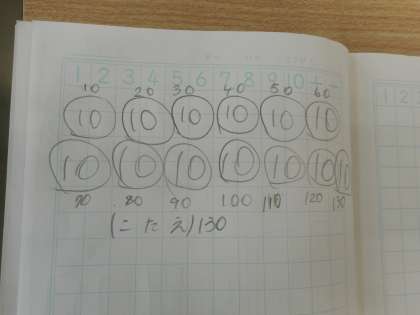 1 2 3 4 5 6 7 8 9 10 + -
10 20 30 40 50 60
10 10 10 10 10 10
10 10 10 10 10 10 10
70 80 90 100 110 120 130
(こたえ)130
1 2